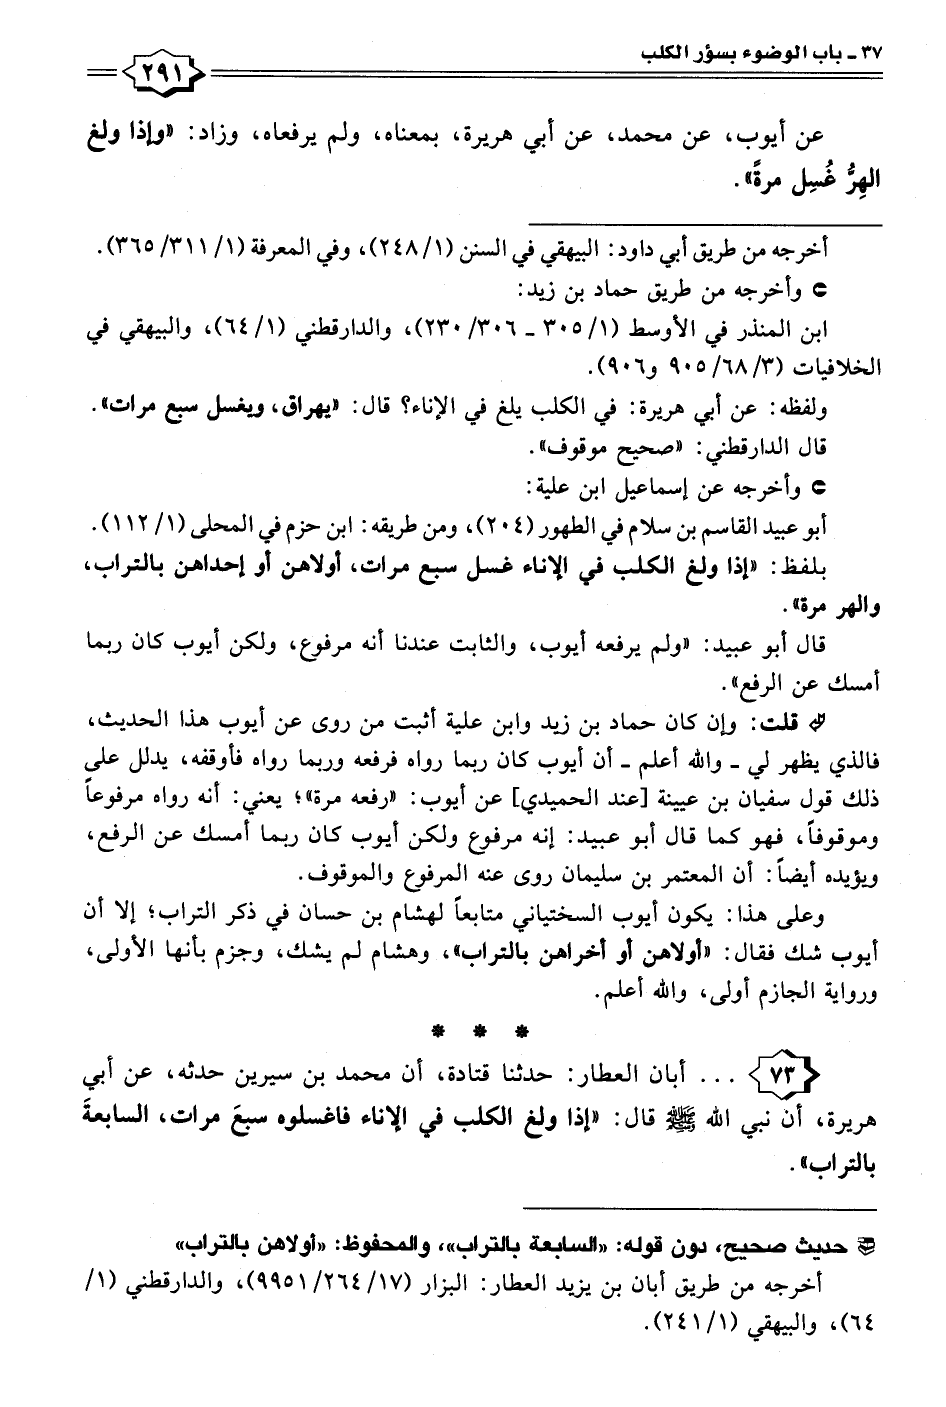 ٣٧ - باب الوضوء بسؤر الكلب
٢٩١
عن أيوب، عن محمد، عن أبي هريرة، بمعناه، ولم يرفعاه، وزاد: «وإذا ولغ
الهِرُّ غُسِل مرةً».
أخرجه من طريق أبي داود: البيهقي في السنن (١/ ٢٤٨)، وفي المعرفة (١/ ٣١١/ ٣٦٥).
⊃ وأخرجه من طريق حماد بن زيد:
ابن المنذر في الأوسط (١/ ٣٠٥ - ٣٠٦/ ٢٣٠)، والدارقطني (١/ ٦٤)، والبيهقي في
الخلافيات (٣/ ٦٨/ ٩٠٥ و٩٠٦).
ولفظه: عن أبي هريرة: في الكلب يلغ في الإناء؟ قال: «يهراق، ويغسل سبع مرات».
قال الدارقطني: «صحيح موقوف».
⊃ وأخرجه عن إسماعيل ابن علية:
أبو عبيد القاسم بن سلام في الطهور (٢٠٤)، ومن طريقه: ابن حزم في المحلى (١/ ١١٢).
بلفظ: «إذا ولغ الكلب في الإناء غسل سبع مرات، أولاهن أو إحداهن بالتراب،
والهر مرة».
قال أبو عبيد: «ولم يرفعه أيوب، والثابت عندنا أنه مرفوع، ولكن أيوب كان ربما
أمسك عن الرفع».
قلت: وإن كان حماد بن زيد وابن علية أثبت من روى عن أيوب هذا الحديث،
فالذي يظهر لي - والله أعلم - أن أيوب كان ربما رواه فرفعه وربما رواه فأوقفه، يدلل على
ذلك قول سفيان بن عيينة [عند الحميدي] عن أيوب: «رفعه مرة»؛ يعني: أنه رواه مرفوعاً
وموقوفاً، فهو كما قال أبو عبيد: إنه مرفوع ولكن أيوب كان ربما أمسك عن الرفع،
ويؤيده أيضاً: أن المعتمر بن سليمان روى عنه المرفوع والموقوف.
وعلى هذا: يكون أيوب السختياني متابعاً لهشام بن حسان في ذكر التراب؛ إلا أن
أيوب شك فقال: «أولاهن أو أخراهن بالتراب»، وهشام لم يشك، وجزم بأنها الأولى،
ورواية الجازم أولى، والله أعلم.
* * *
٧٣ ... أبان العطار: حدثنا قتادة، أن محمد بن سيرين حدثه، عن أبي
هريرة، أن نبي الله ﷺ قال: «إذا ولغ الكلب في الإناء فاغسلوه سبعَ مرات، السابعةَ
بالتراب».
حديث صحيح، دون قوله: «السابعة بالتراب»، والمحفوظ: «أولاهن بالتراب»
أخرجه من طريق أبان بن يزيد العطار: البزار (١٧/ ٢٦٤/ ٩٩٥١)، والدارقطني (١/
٦٤)، والبيهقي (١/ ٢٤١).